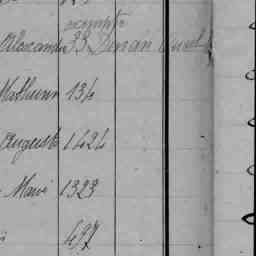 exempté
Alexandre 33 Dinan
Mathurin 134
Auguste 1424
Marie 1323
497